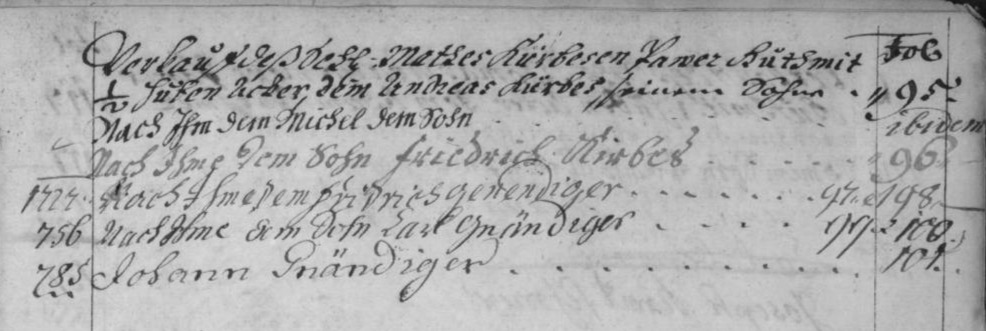 Verkauf deß Mathes Kürbesen Pawer Guth mit Fol
1/2 Huben Acker, dem Andreas Kürbes seinem Sohn . 95.
Nach Ihm dem Michel dem Sohn ibidem
Nach Ihme dem Sohn Friedrich Kirbes 96
Nach Ihme dem genendiger 97. 98.
756 Nach Ihme dem Sohn Carl Gnändiger 99. 100.
785 Johann Gnändiger 101.